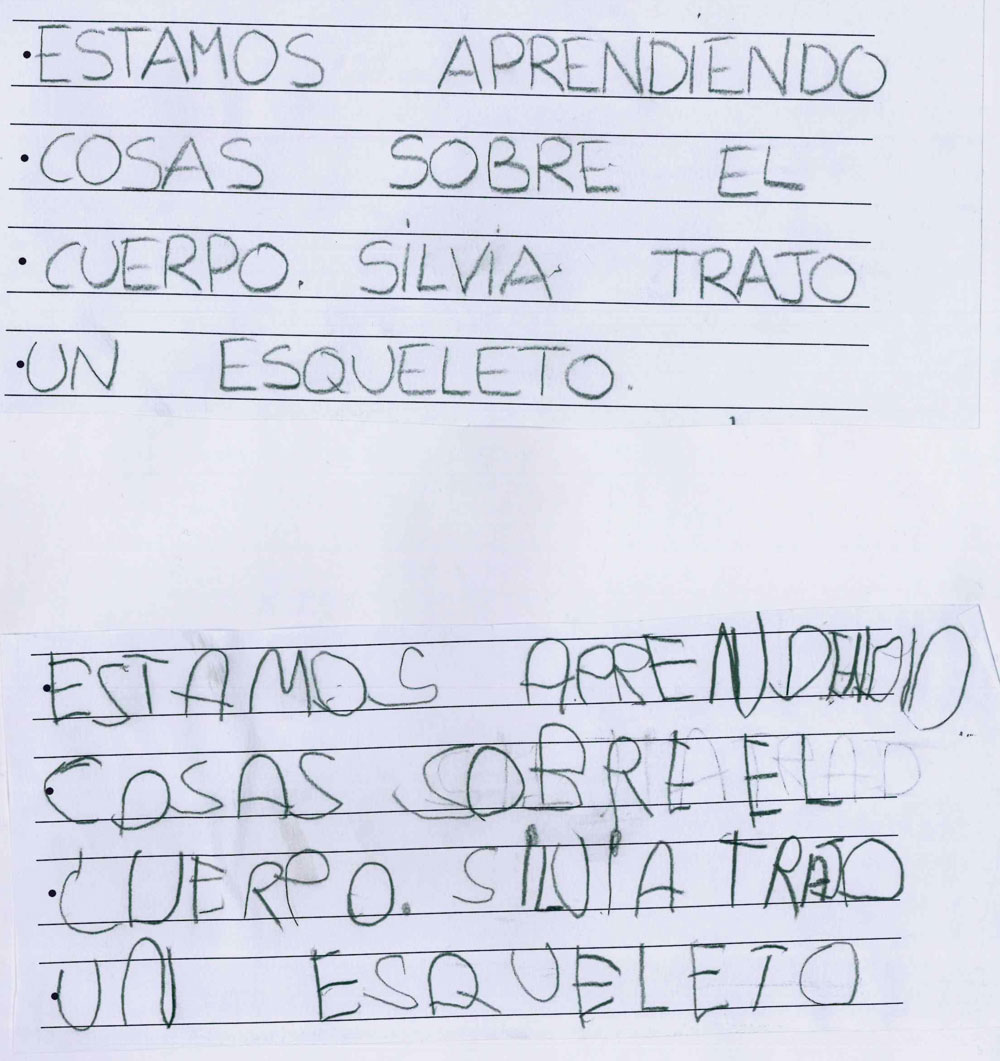 •ESTAMOS APRENDIENDO
•COSAS SOBRE EL
•CUERPO. SILVIA TRAJO
•UN ESQUELETO.
•ESTAMOS APRENDIENDO
•COSAS SOBRE EL
•CUERPO. SILVIA TRAJO
•UN ESQUELETO